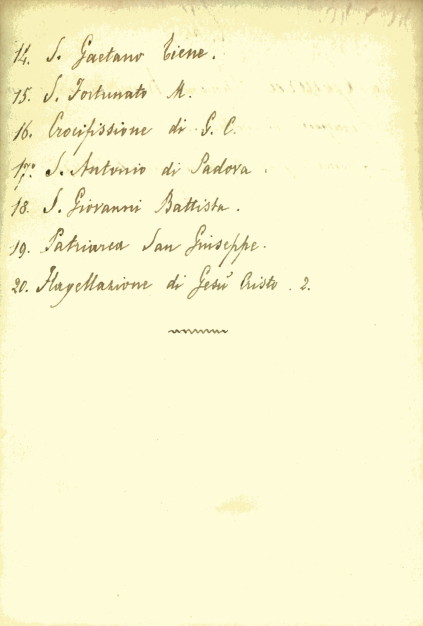 14. S. Gaetano Tiene.
15. S. Fortunato M.
16. Crocifissione di G. C.
17. S. Antonio di Padova.
18. S. Giovanni Battista.
19. Patriarca San Giuseppe.
20. Flagellazione di Gesù Cristo. 2.